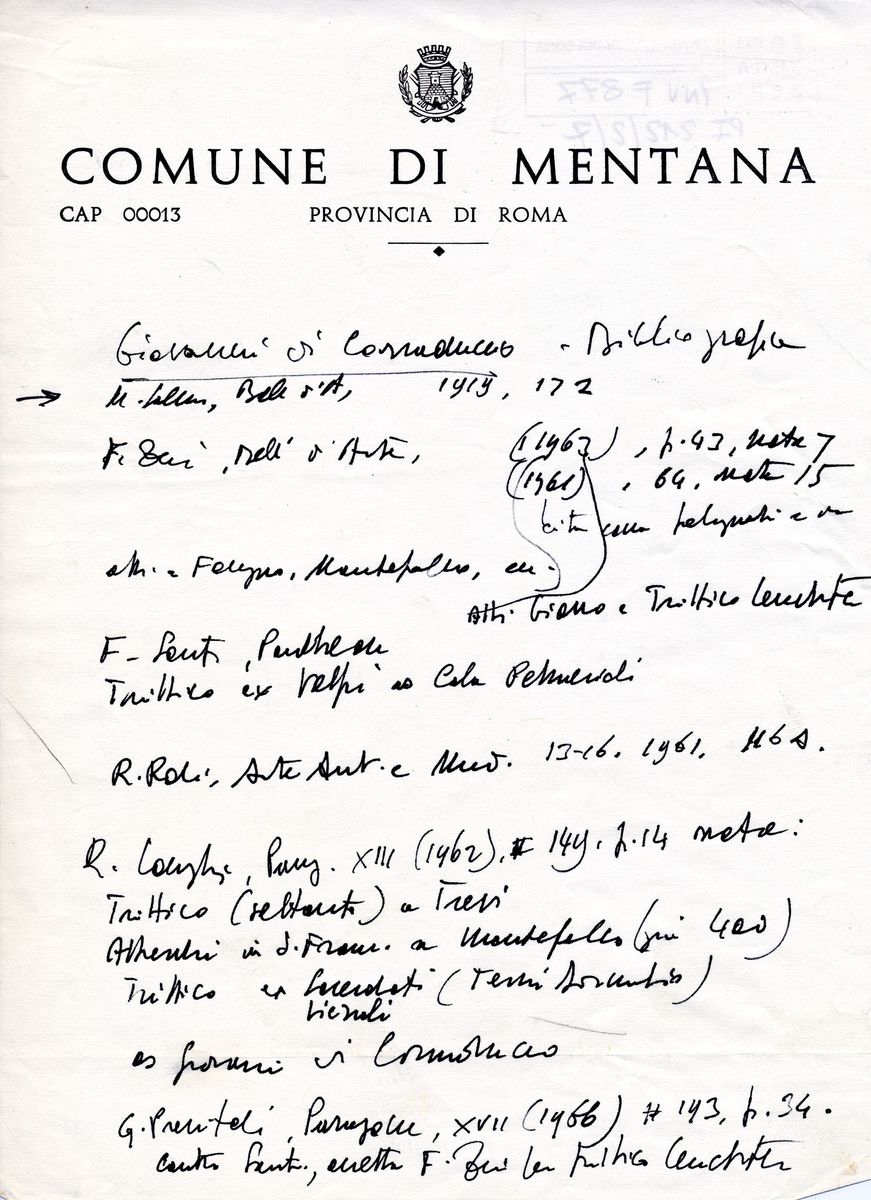 INV F 877
PI 212/2/7
COMUNE DI MENTANA
CAP 00013 PROVINCIA DI ROMA
Giovanni di Corraduccio - Bibliografia
→ M. Salmi, Boll. d'A, 1919, 172
F. Zeri, Boll. d'Arte, (1963), p. 43, nota 7
(1961), 64, nota 15
cita come
a Foligno, Montefalco, ecc.
Altri Giano e Trittico
F. Santi,
Trittico ex Volpi as Cola Petruccioli
R. Roli, Arte Ant. e Mod. 13-16. 1961.
R. Longhi, Parag. XIII (1962), # 149, p. 14 nota:
Trittico a Trevi
Affreschi in S. Franc. a Montefalco (già 400)
Trittico ex
as Giovanni di Corraduccio
G. Previtali, Paragone, XVII (1966) # 193, p. 34.
contro Santi, F. Zeri Trittico